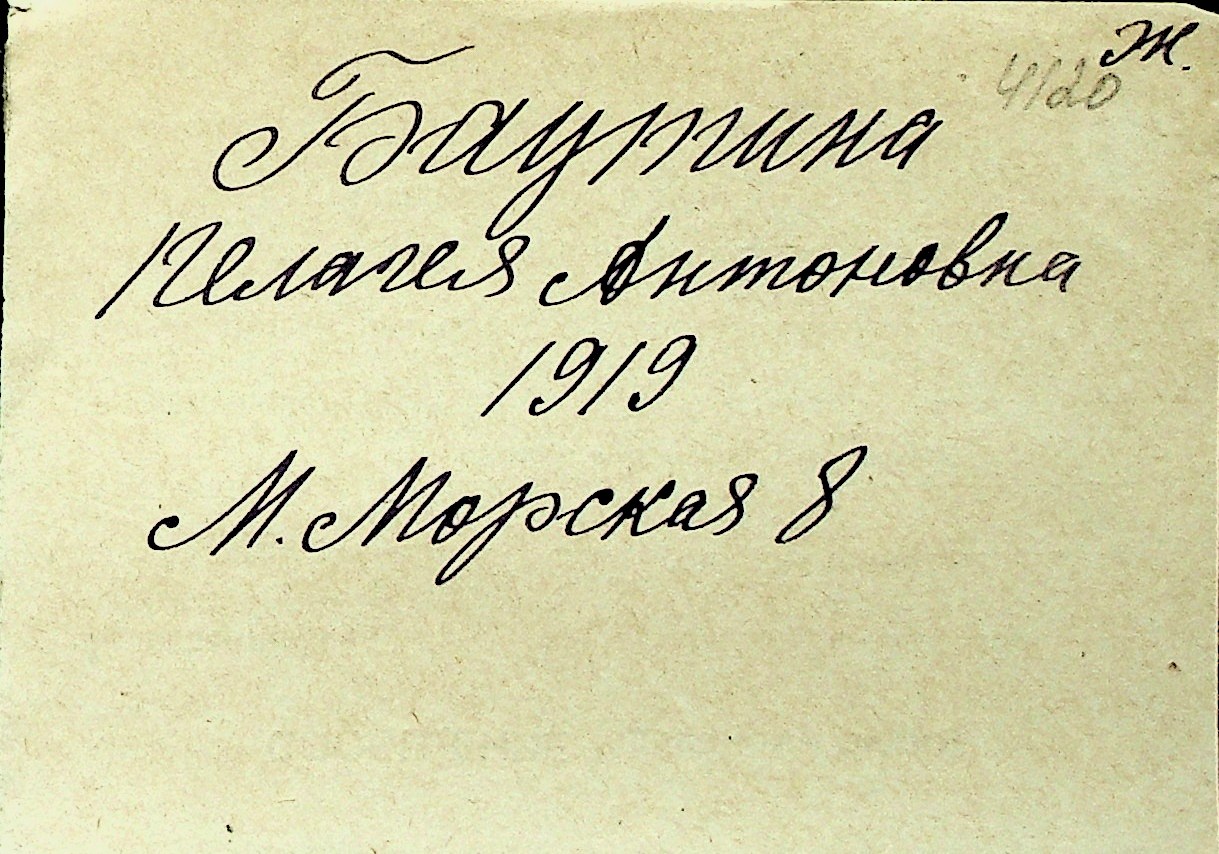 ж.
4120
Баутина
Пелагея Антоновна
1919
М. Морская 8